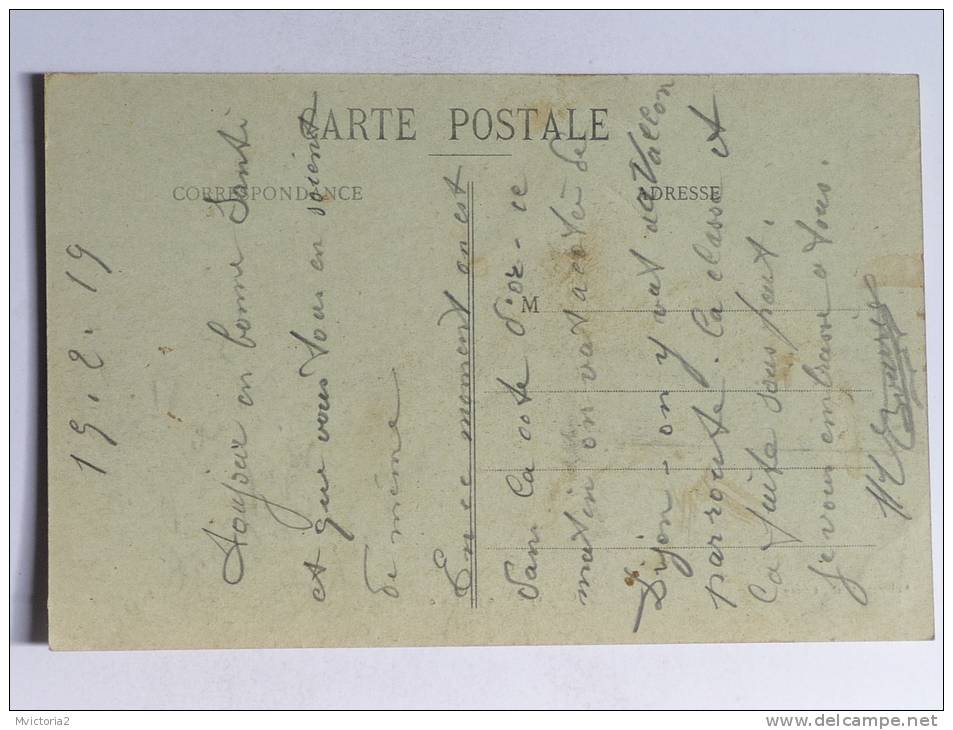 CARTE POSTALE
CORRESPONDANCE
ADRESSE
M
19. 2. 19
toujour en bonne Santé
et que vous tous en soient
de même
En ce moment on est
dans la cote d'or - ce
matin on vat a coté de
Dijon - on y vat
par route. la classe et
la fuite sous peut.
je vous embrasse a tous.
Mvictoria2
www.delcampe.net